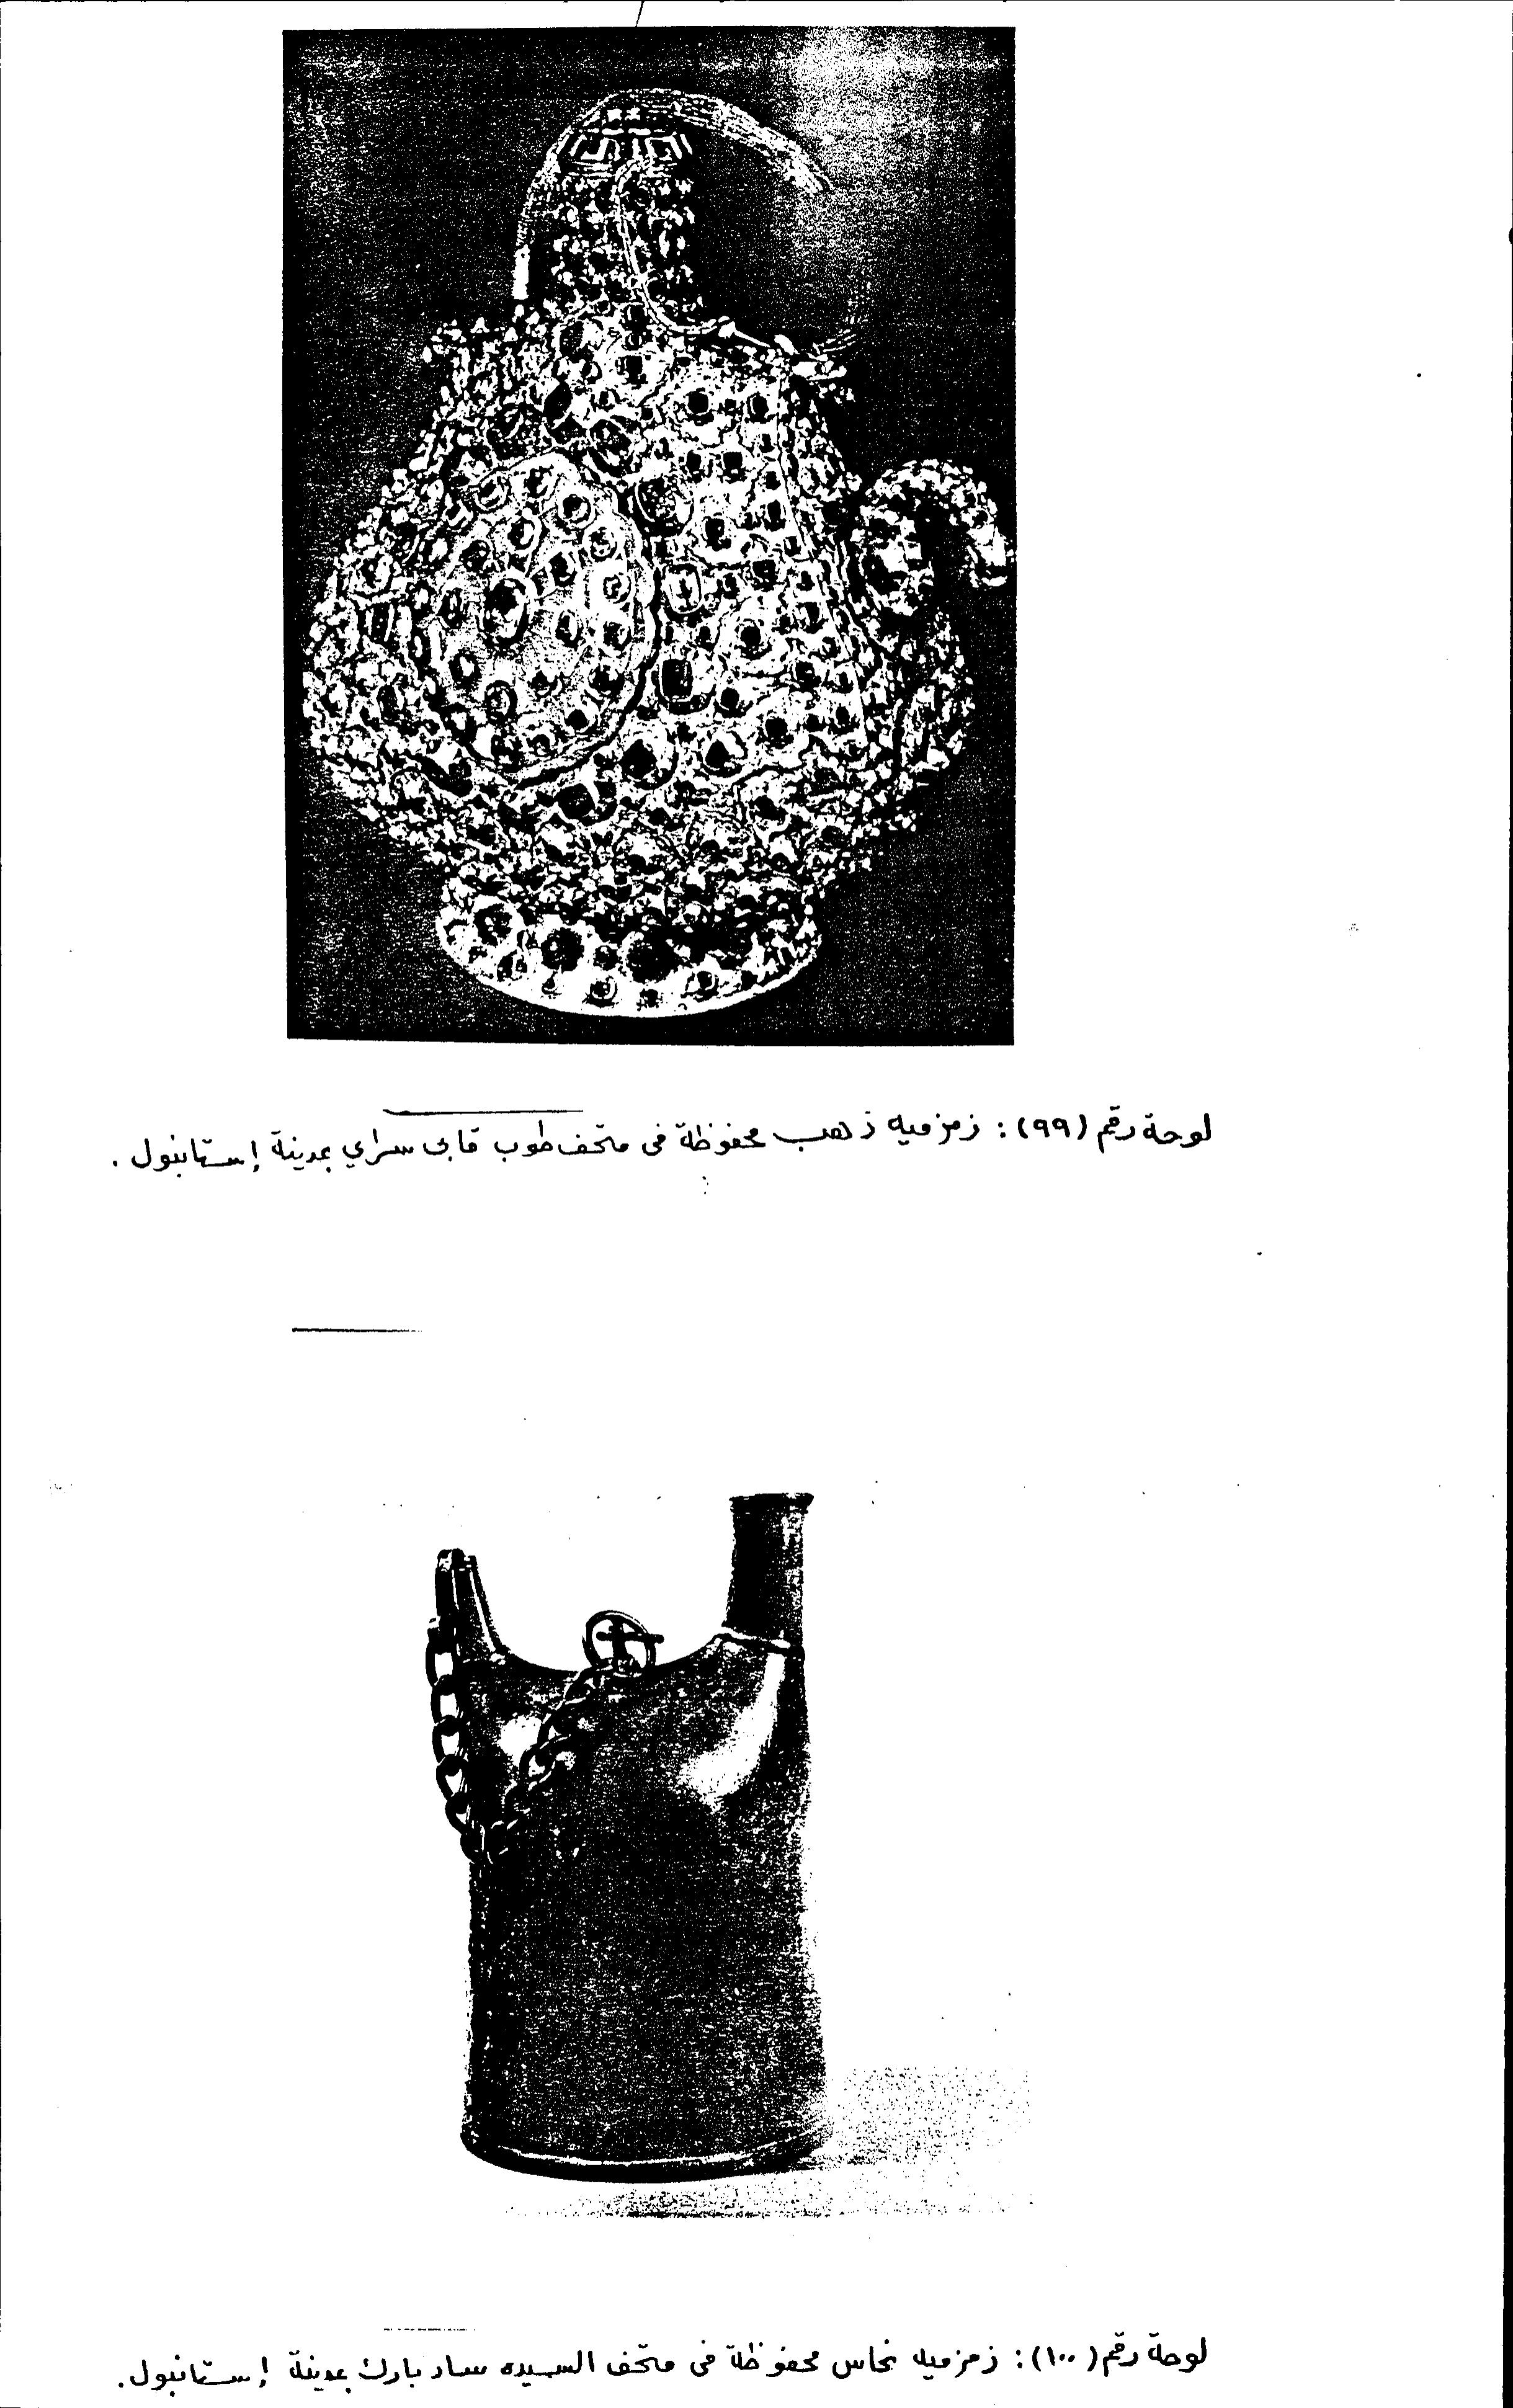 لوحة رقم (٩٩) : زمزميه ذهب محفوظة فى متحف طوب قابى سراي بمدينة إستانبول .
لوحة رقم (١٠٠) : زمزميه نحاس محفوظة فى متحف السيده ساد بارك بمدينة إستانبول .